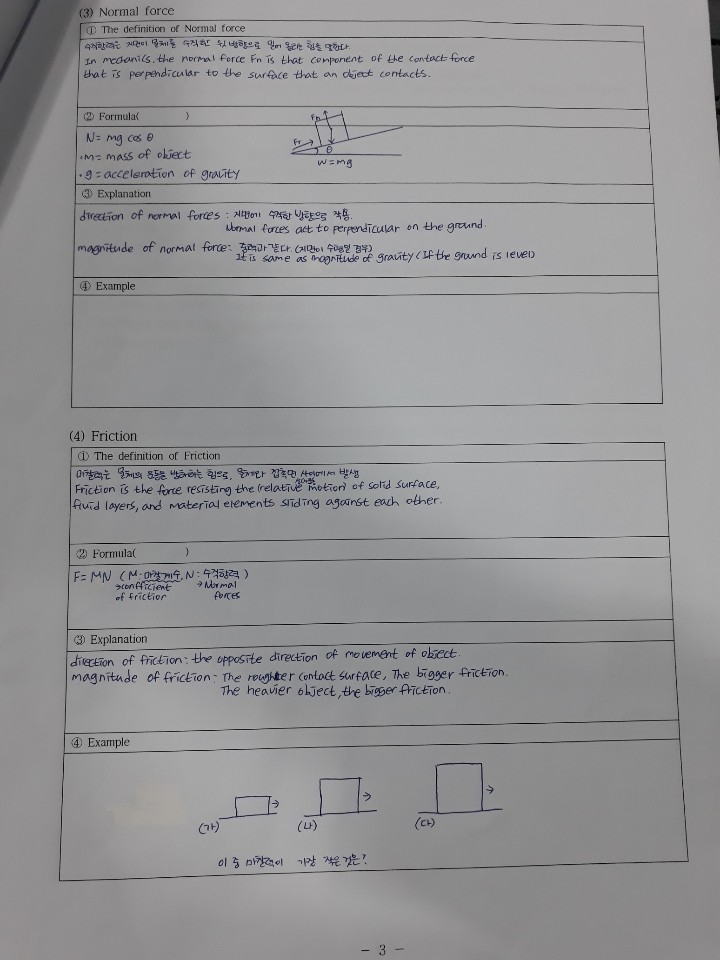 (3) Normal force
① The definition of Normal force
수직항력은 지면이 물체를 수직한 위 방향으로 밀어 올리는 힘을 말한다.
In mechanics, the normal force Fn is that component of the contact force
that is perpendicular to the surface that an object contacts.
② Formula( )
N = mg cos θ
·m = mass of object
·g = acceleration of gravity
Fn
Fr
θ
W = mg
③ Explanation
direction of normal forces : 지면에 수직한 방향으로 작용.
Normal forces act to perpendicular on the ground.
magnitude of normal force : 중력과 같다. (지면이 수평일 경우)
It is same as magnitude of gravity (If the ground is level)
④ Example
(4) Friction
① The definition of Friction
마찰력은 물체의 운동을 방해하는 힘으로, 물체와 접촉면 사이에서 발생
Friction is the force resisting the (relative motion) of solid surface,
fluid layers, and material elements sliding against each other.
② Formula( )
F = MN (M : 마찰계수, N : 수직항력)
→ confficient → Normal
of friction forces
③ Explanation
direction of friction : the opposite direction of movement of object.
magnitude of friction - The rougher contact surface, The bigger friction.
The heavier object, the bigger friction.
④ Example
(가) (나) (다)
이 중 마찰력이 가장 작은 것은?
- 3 -